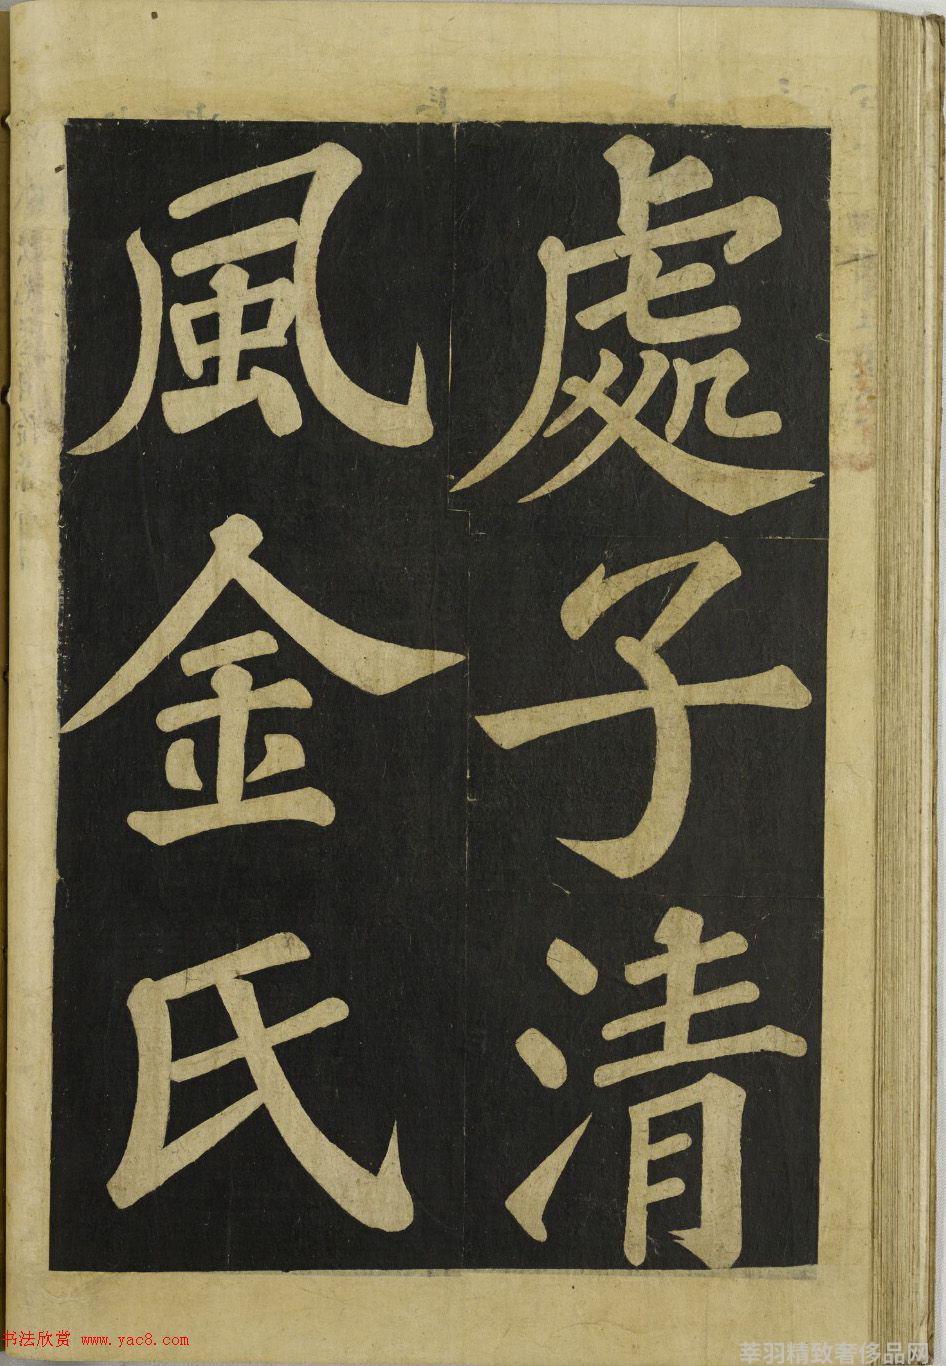 處子清
風金氏
书法欣赏 www.yac8.com
莘羽精致奢侈品网